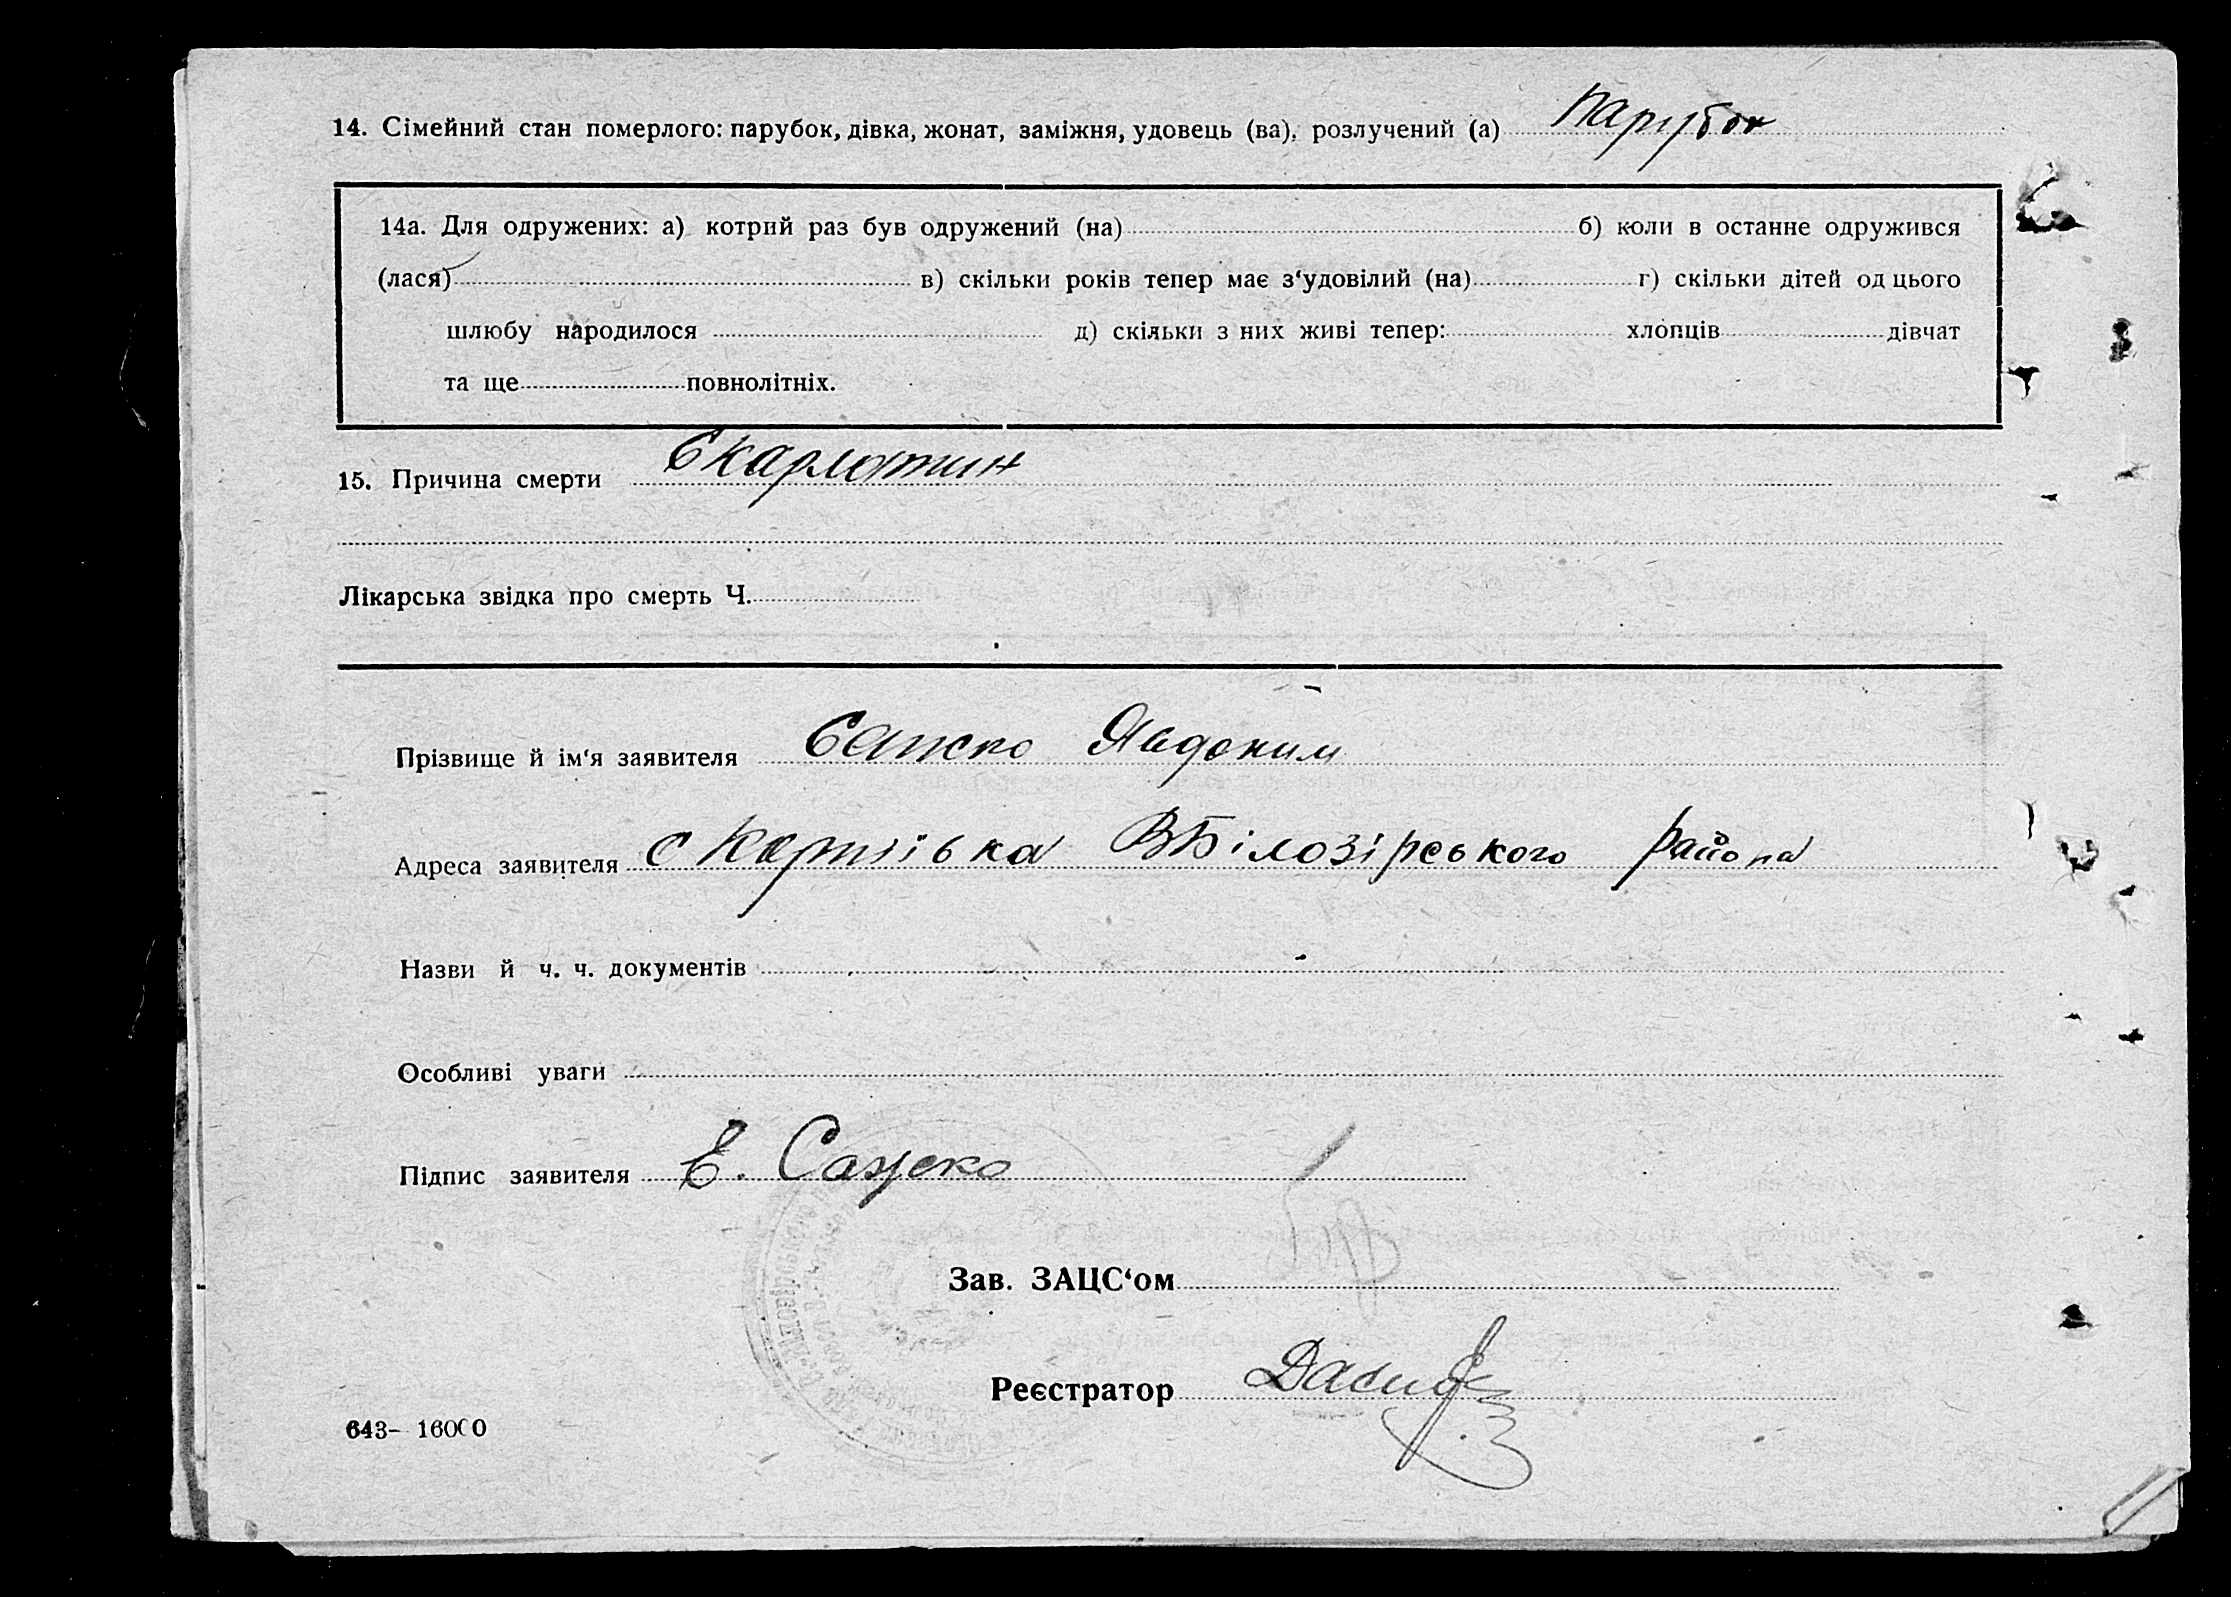 14. Сімейний стан померлого: парубок, дівка, жонат, заміжня, удовець (ва), розлучений (а) парубок
14а. Для одружених: а) котрий раз був одружений (на) б) коли в останнє одружився
(лася) в) скільки років тепер має з‘удовілий (на) г) скільки дітей од цього
шлюбу народилося д) скільки з них живі тепер: хлопців дівчат
та ще повнолітніх.
15. Причина смерти Скарлатин
Лікарська звідка про смерть Ч.
Прізвище й ім‘я заявителя Явдоким
Адреса заявителя с ВБілозірського района
Назви й ч. ч. документів
Особливі уваги
Підпис заявителя Е.
Зав. ЗАЦС‘ом
Реєстратор
643— 16000